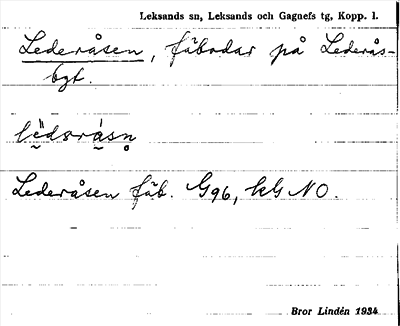 Leksands sn, Leksands och Gagnefs tg, Kopp. l.
Lederåsen, fäbodar på Lederås-
bgt.
lë̬dsrȧ̬sn̥
Lederåsen fäb. G96, kG NO.
Bror Lindén 1934